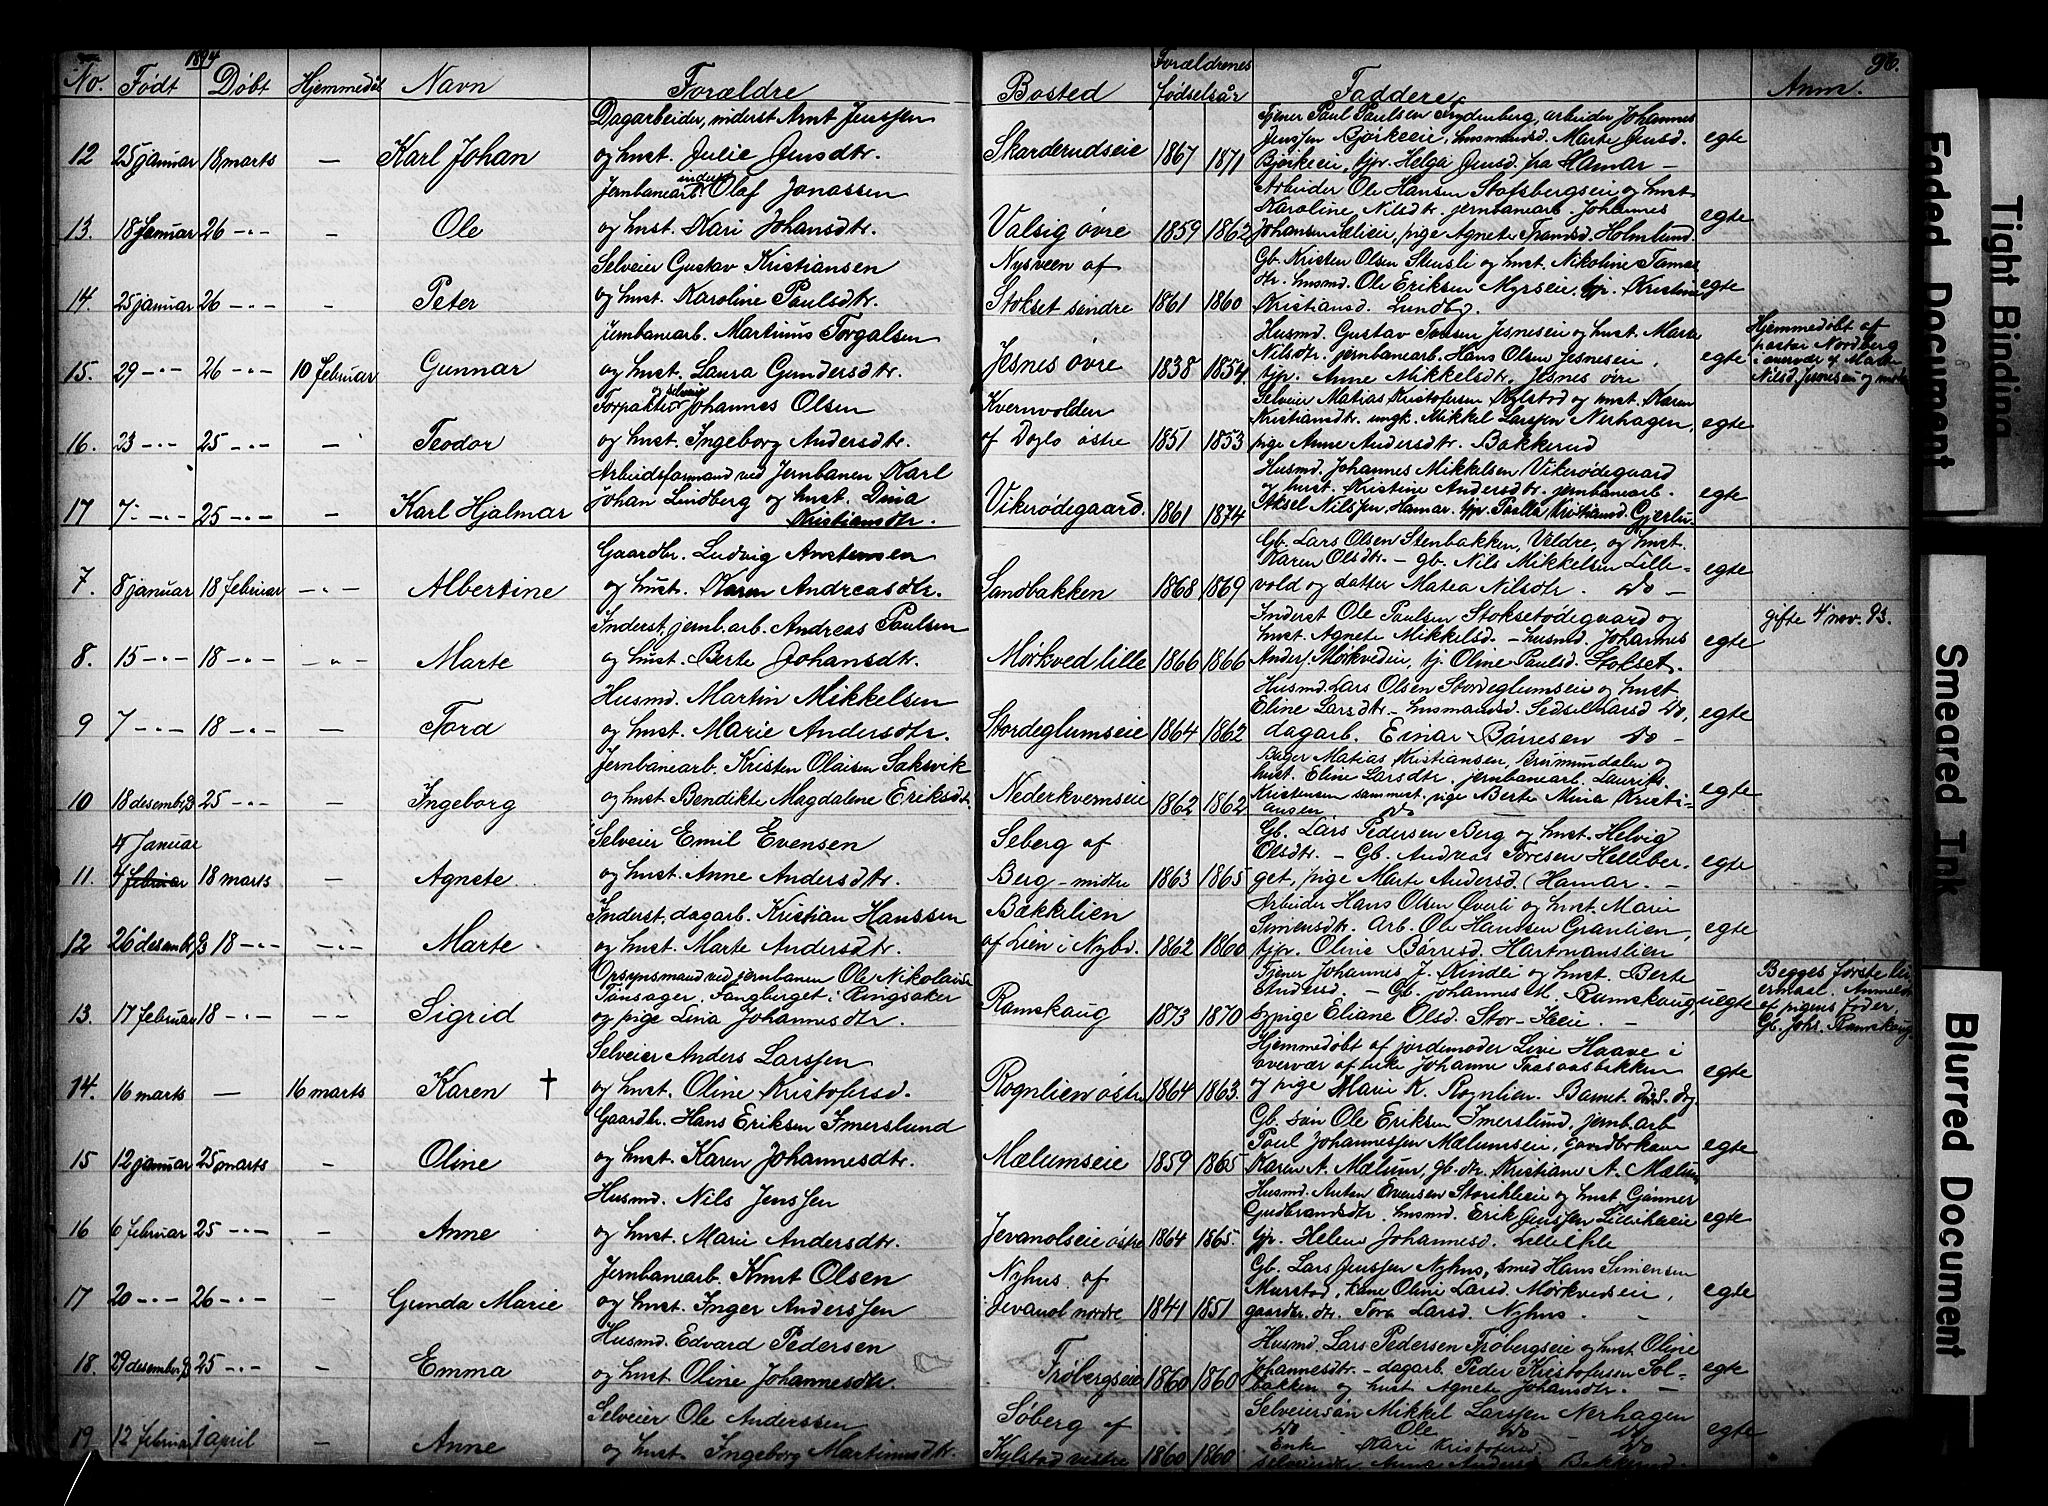 1894
96.
No. Født Døbt Hjemmedøbt Navn Forældre Bosted Forældrenes Fødselsår Faddere Anm.
12 25 januar 18 marts — Karl Johan
Dagarbeider, inderst Arnt Jenssen
og hust. Julie Jensdtr.
Skarderudseie 1867 1871
Tjener Paul Paulsen Frydenberg, arbeider Johannes
Jenssen Bjørkeeie, husmandsd. Marte Jensd.
Bjørkeeie, tjp. Helga Jensd. fra Hamar —
egte
13. 18 januar 26 -"- — Ole
Jernbanearb. inderst Olaf Jonassen
og hust. Kari Johansdtr.
Valsig øvre 1859 1862
Arbeider Ole Hansen Stafsbergseie og hust.
Karoline Nilsdtr. jernbanearb. Johannes
Johansen Sælieie, pige Agnete Holmlund.
egte
14. 25 januar 26 -"- — Peter
Selveier Gustav Kristiansen
og hust. Karoline Paulsdtr.
Nysveen af
Stokset søndre 1861 1860
Gb. Kristen Olsen Skusli og hust. Nikoline
dtr. husmd. Ole Eriksen Myrseie, tjp. Kristine
Kristiansd. Lundby.
egte
15. 29 -"- 26 -"- 10 februar Gunnar
Jernbanearb. Martinus Torgalsen
og hust. Laura Gundersdtr.
Jesnes øvre 1838 1854
Husmd. Gustav Jesneseie og hust. Marte
Nilsdtr. jernbanearb. Hans Olsen Jesneseie,
tjp. Anne Mikkelsdtr. Jesnes øvre
egte
Hjemmedøbt af
pastor Nordberg
i overvær af Marte
Nilsd. Jesneseie og
16. 23 -"- 25 -"- — Teodor
Forpakter og selveier Johannes Olsen
og hust. Ingeborg Andersdtr.
Kvernvolden
af Doglo østre 1851 1853
Selveier Matias Kristofersen Kylstad og hust. Karen
Kristiansdtr. ungk. Mikkel Larssen Nerhagen,
pige Anne Andersdtr. Bakkerud
egte
17 7 -"- 25 -"- — Karl Hjalmar
Arbeidsformand ved Jernbanen Karl
Johan Lundberg og hust. Dina
Kristiansdtr.
Vikerødegaard 1861 1874
Husmd. Johannes Mikkelsen Vikerødegaard
og hust. Kristine Andersdtr. jernbanearb.
Aksel Nilssen, Hamar. tjp. Kristiansd.
egte
7. 8 januar 18 februar -"- Albertine
Gaardbr. Ludvig Anstensen
og hust. Karen Andreasdtr.
Sandbakken 1868 1869
Gb. Lars Olsen Stenbakken, Veldre, og hust.
Karen Olsdtr. — gb. Nils Mikkelsen Lille-
vold og datter Matea Nilsdtr. Do —
egte
8. 15 -"- 18 -"- -"- Marte
Inderst, jernb.arb. Andreas Paulsen
og hust. Berte Johansdtr.
Mørkved lille 1866 1866
Inderst Ole Paulsen Stoksetødegaard og
hust. Agnete Mikkelsd. — husmd. Johannes
Anders. Mørkvedeie, tj. Oline Paulsd. Stokset.
egte
gifte 4 nov. 93.
9 7 -"- 18 -"- — Tora
Husmd. Martin Mikkelsen
og hust. Marie Andersdtr.
Stordeglumseie 1864 1862
Husmd. Lars Olsen Stordeglumseie og hust.
Eline Larsdtr. — husmandsd. Sedsel Larsd Do,
dagarb. Einar Børresen Do —
egte
10 18 desembr. 93 25 -"- — Ingeborg
Jernbanearb. Kristen Olaisen Saksvik
og hust Bendikte Magdalene Eriksdtr.
Nederkvernseie 1862 1862
Bager Matias Kristiansen, Brumundalen og
hust. Eline Larsdtr, jernbanearb. Laurits
Kristensen sammest., pige Berte Mina Kristi-
ansen Do
egte
11. 4 Januar 4 februar 18 marts — Agnete
Selveier Emil Evensen
og hust. Anne Andersdtr.
Seberg af
Berg - midtre 1863 1865
Gb. Lars Pedersen Berg og hust. Helvig
Olsdtr. — Gb. Andreas Toresen Helliber-
get, pige Marte Andersd. (Hamar. —
egte
12 26 desemb. 93 18 -"- -"- Marte
Inderst, dagarb. Kristian Hanssen
og hust. Marte Andersdtr.
Bækkelien
af Lien i Nybd. 1862 1860
Arbeider Hans Olsen Øverli og hust. Marie
Simensdtr. Arb. Ole Hanssen Granlien,
tjp. Oline Børresd. Hartmanslien
egte
13. 17 februar 18 -"- -- Sigrid
Opsynsmand ved jernbanen Ole Nikolaisen
Tønsager, Fangberget i Ringsaker
og pige Lina Johannesdtr.
Ramskaug 1873 1870
Tjener Johannes J. Kindli og hust. Berte
Andersd. — Gb. Johannes M. Ramskaug,
sypige Eliane Olsd. Stor-Heie. —
uegte
Begges første lei-
ermaal. Anmeldt
af pigens fader,
Gb. Johs. Ramskaug.
14. 16 marts — 16 marts Karen †
Selveier Anders Larssen
og hust. Oline Kristofersd.
Rognlien østre 1864 1863.
Hjemmedøbt af jordemoder Live Haave i
overvær af enke Johanne Taasaasbakken
og pige Marie K. Rognlien. Barnet død s. dag.
egte
15 12 januar 25 marts — Oline
Gaardbr. Hans Eriksen Imerslund
og hust. Karen Johannesdtr.
Mælumseie 1859 1865
Gb. søn Ole Eriksen Imerslund, jernb.arb
Paul Johannessen Mælumseie, gaardbrkone
Karen A. Mælum, gb. dtr. Kristiane A. Mælum
egte
16 6 februar 25 -"- — Anne
Husmd. Nils Jenssen
og hust. Marie Andersdtr.
Jevanolseie østre 1864 1865.
Husmd. Anton Evensen Storihleeie og hust Gunner
Gudbrandsdtr. husmd. Erik Jenssen Lilleihleeie
tjp. Helene Johannesd. Lilleihle
egte
17 20 -"- 26 -"- — Gunda Marie
Jernbanearb. Knut Olsen
og hust. Inger Anderssen
Nyhus af
Jevanol nordre 1841 1851
Gb. Lars Jenssen Nyhus, smed Hans Simensen
Murstad, kone Oline Larsd. Mørkvedseie,
gaardbr. dtr. Tora Larsd. Nyhus. —
egte
18. 29 desember 93 25 -"- — Emma
Husmd. Edvard Pedersen
og hust. Oline Johannesdtr.
Frøbergseie 1860 1860
Husmd. Lars Pedersen Frøbergseie og hust Oline
Johannesdtr. — dagarb. Peder Kristofersen Sol-
bakken og hust Agnete Johansdtr. —
egte
19 12 februar 1 april — Anne
Selveier Ole Anderssen
og hust. Ingeborg Martinusdtr.
Søberg af
Kylstad vestre 1860 1860
Selveiersøn Mikkel Larssen Nerhagen
Do Ole Do Do
Enke Kari Kristofersd. Do
Selveierdtr. Anne Andersd. Bakkerud.
egte
Faded Document
Tight Binding
Smeared Ink
Blurred Document